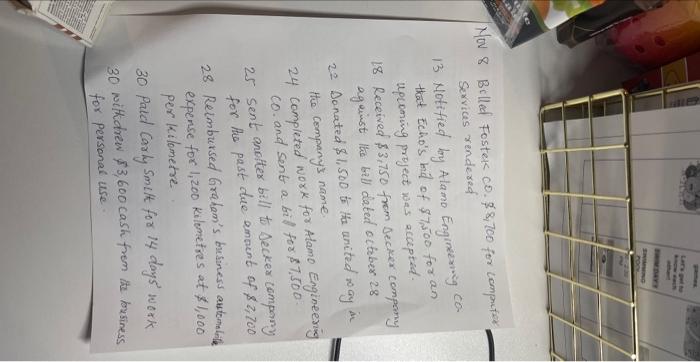 Nov 8 Billed Foster Co. $8,700 for computer
Services rendered
13 Notified by Alamo Engineering co.
that Echo's bid of $7,500 for an
upcoming project was accepted.
18 Received $3,750 from Decker company
against the bill dated october 28
22 Donated $1,500 to the united way in
the company's name.
24 Completed work for Alamo Engineering
CO. and sent a bill for $7,500.
25 sent another bill to Decker company
for the past due amount of $2,700
28 Reimbursed Graham's business automobile
expense for 1,200 kilometres at $1,000
per kilometre.
30 Paid Carly Smith for 14 days' work
30 withdrew $3,600 cash from the business
for personal use.